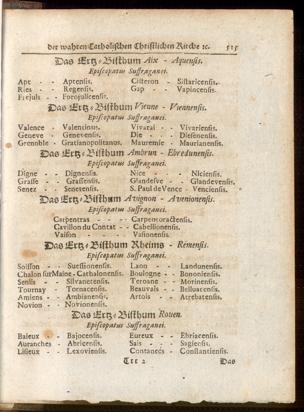 der wahren Catholischen Christlichen Kirche ꝛc. 515
Das Ertz-Bisthum Aix - Aquensis.
Episcopatus Suffraganei.
Apt - - Aptensis. Cisteron - Sistaricensis.
Ries - - Regensis. Gap - - Vapincensis.
Frejuls - - Forojulicensis.
Das Ertz-Bisthum Vienne - Viennensis.
Episcopatus Suffraganei.
Valence - Valencinus. Vivarai - - Vivariensis.
Geneve - Genevensis. Die - - Diessensis.
Grenoble - Gratianopolitanus. Mauremie - Maurianensis.
Das Ertz-Bisthum Ambrun - Ebredunensis.
Episcopatus Suffraganei.
Digne - - Dignensis. Nice - - Niciensis.
Grasse - - Grassensis. Glandesve - Glandevensis.
Senez - - Senetensis. S. Paul de Vence - Venciensis.
Das Ertz-Bisthum Avignon - Avenionensis.
Episcopatus Suffraganei.
Carpentras - - - Carpentoractensis.
Cavillon du Contat - - Cabellionensis.
Vaison - - - Vasionensis.
Das Ertz-Bisthum Rheims - Remensis.
Episcopatus Suffraganei.
Soisson - - Suessionensis. Laon - - Landunensis.
Chalon sur Maine - Cathalonensis. Boulogne - - Bononiensis.
Senlis - - Silvanetensis. Teroane - - Morinensis.
Tournay - - Tornacensis. Beauvais - - Belluacensis.
Amiens - - Ambianensis. Artois - - Atrebatensis.
Novion - - Novionensis.
Das Ertz-Bisthum Rouen.
Episcopatus Suffraganei.
Baieux - - Bajocensis. Eureux - - Ebriacensis.
Auranches - Abricensis. Sais - - Sagiensis.
Lisieux - - Lexoviensis. Contances - Constantiensis.
Ttt 2 Das